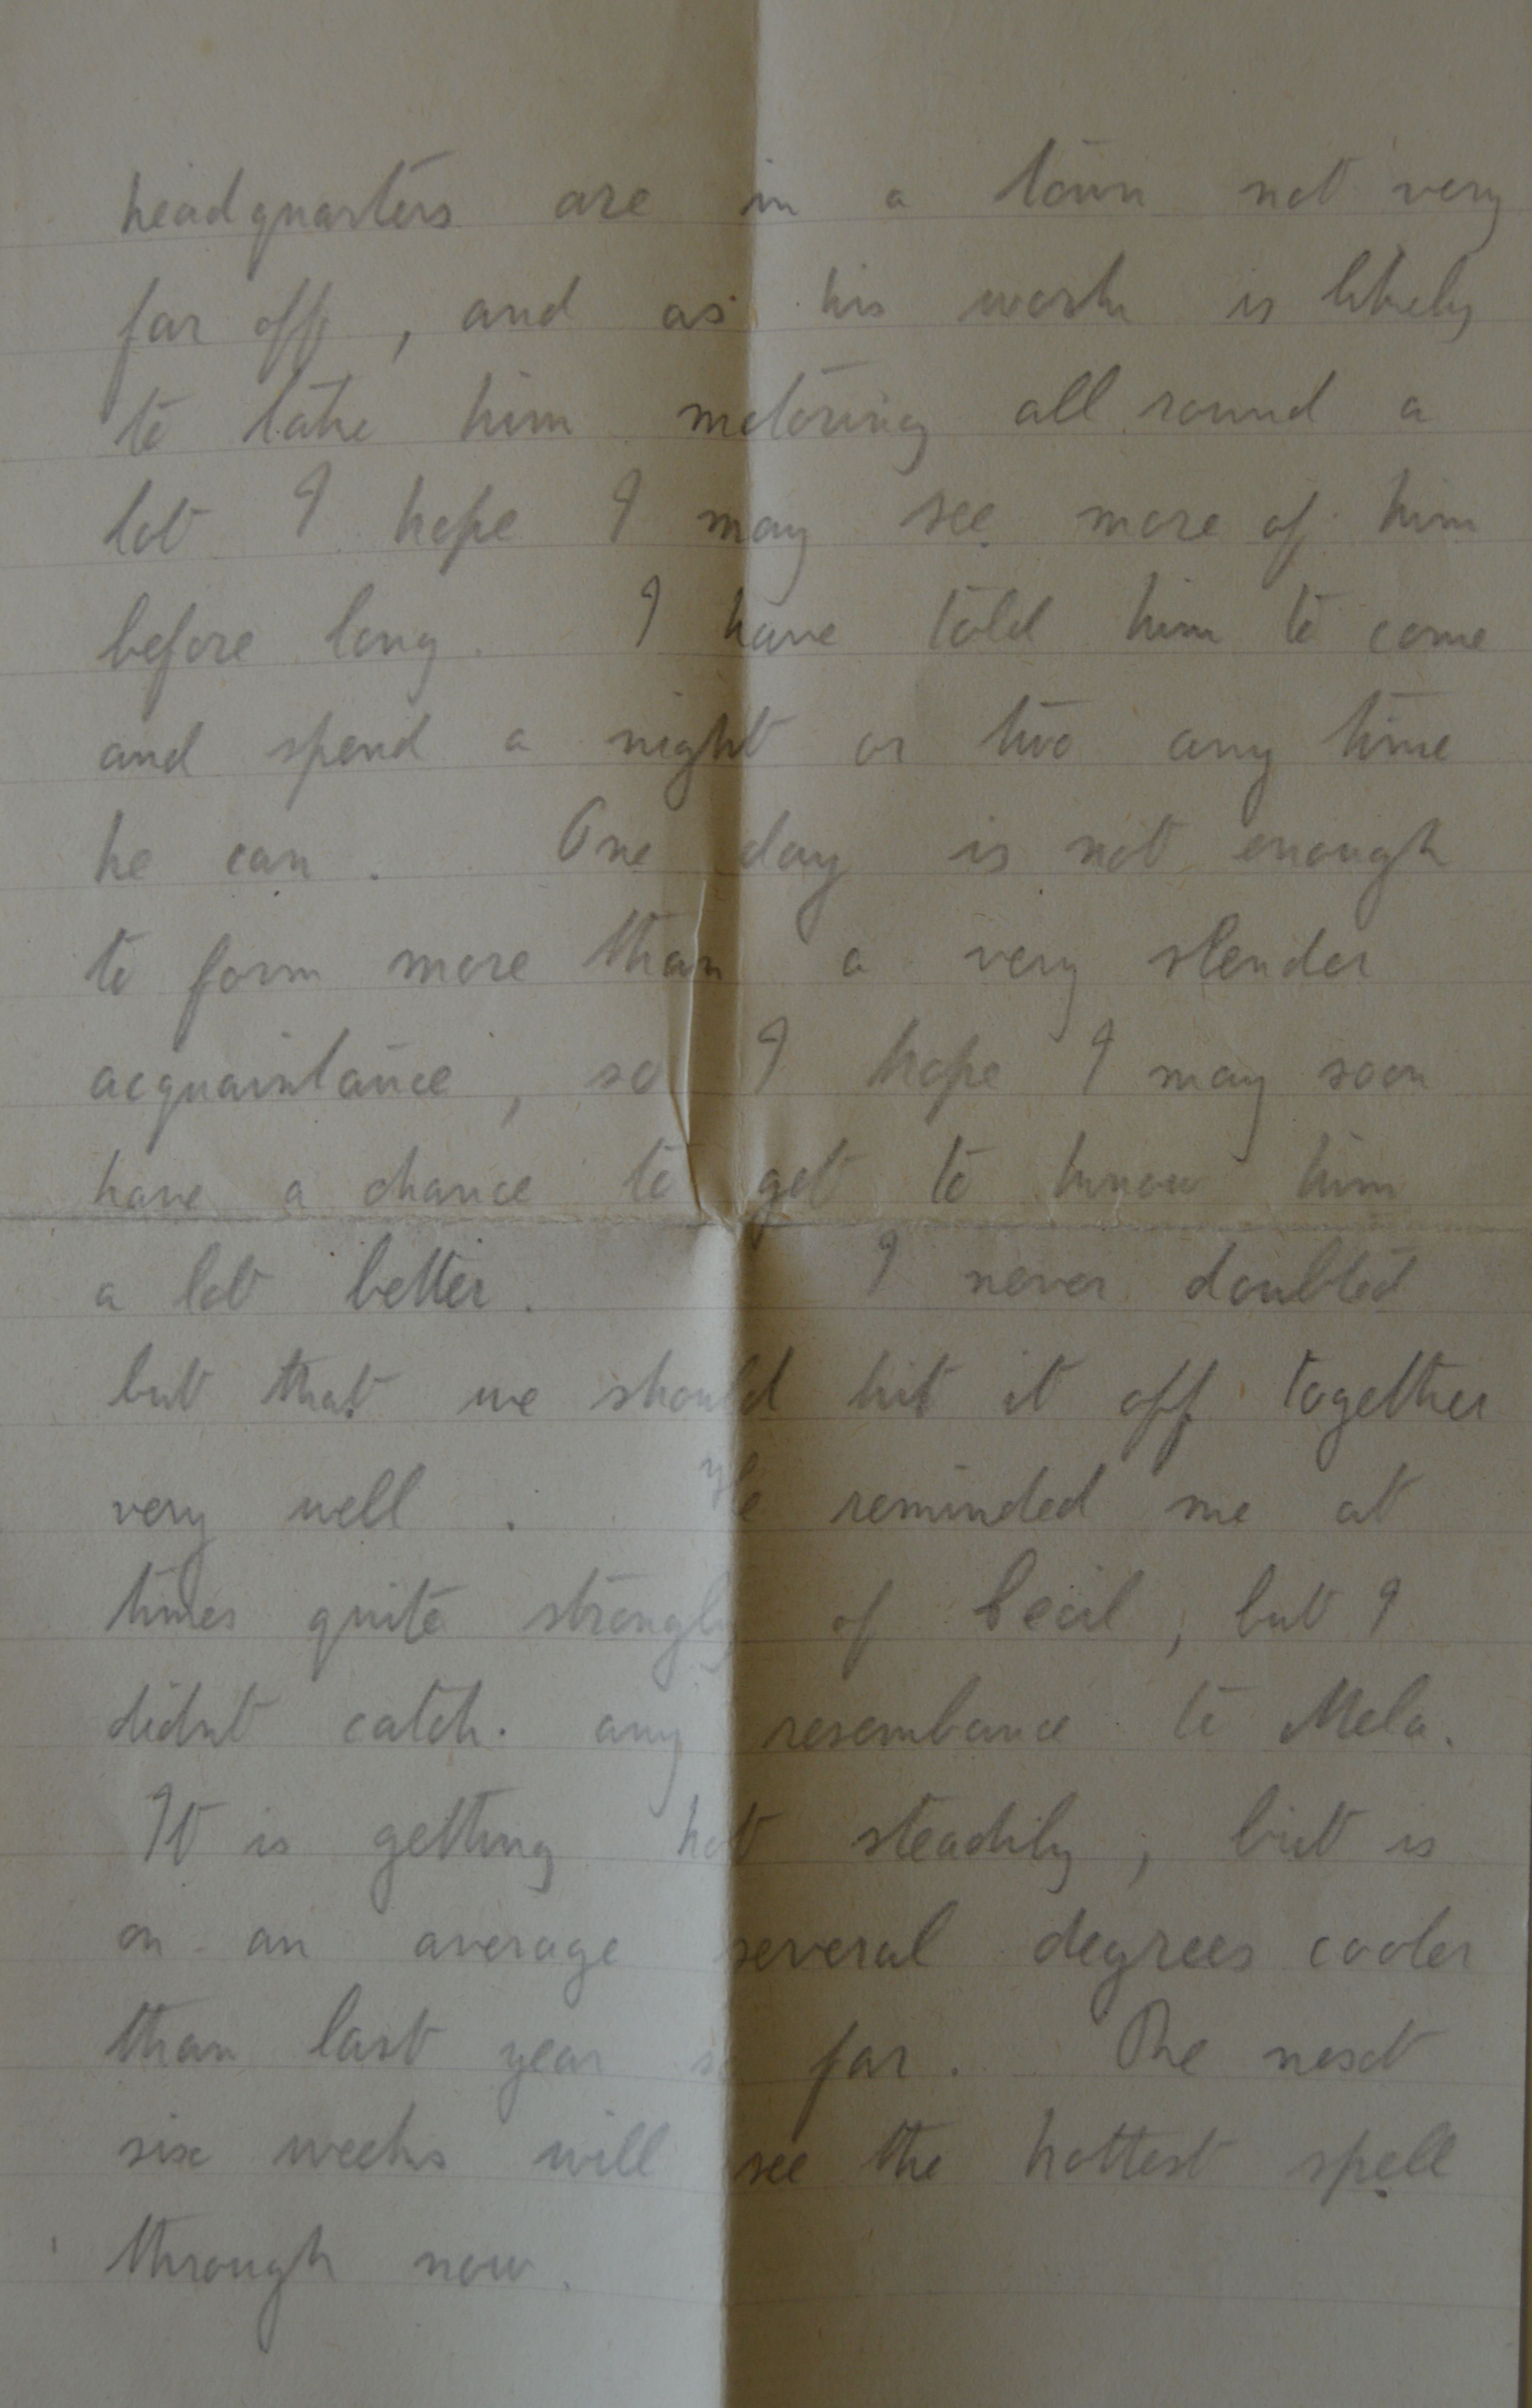 headquarters are in a town not very
far off, and as his work is likely
to take him motoring all round a
lot I hope I may see more of him
before long. I have told him to come
and spend a night or two any time
he can. One day is not enough
to form more than a very slender
acquaintance, so I hope I may soon
have a chance to get to know him
a lot better. I never doubted
but that we should hit it off together
very well. He reminded me at
times quite strongly of Cecil, but I
didnt catch any resembance to Mela.
It is getting hot steadily, but is
on an average several degrees cooler
than last year so far. The next
six weeks will see the hottest spell
through now.